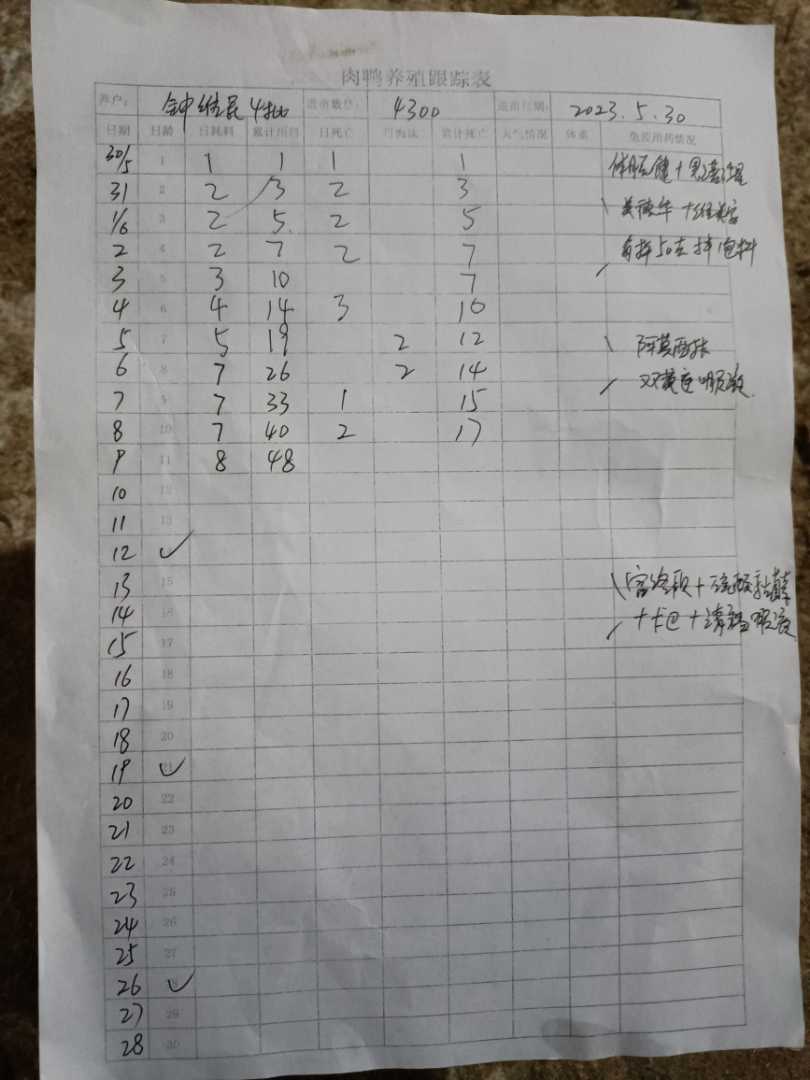 肉鸭养殖跟踪表
养户: 钟维 4批 进苗数量: 4300 进苗日期: 2023.5.30
日期 日龄 日耗料 累计用料 日死亡 日淘汰 累计死亡 天气情况 体重 免疫用药情况
30/5 1 1 1 1 1
31 2 2 3 2 3
1/6 3 2 5 2 5
2 4 2 7 2 7
3 5 3 10 7
4 6 4 14 3 10
5 7 5 19 2 12 阿莫西林
6 8 7 26 2 14 双黄连
7 9 7 33 1 15
8 10 7 40 2 17
9 11 8 48
10 12
11 13
12 ✓
13 15
14 16
15 17
16 18
17 19
18 20
19 21 ✓
20 22
21 23
22 24
23 25
24 26
25 27
26 ✓
27 29
28 30